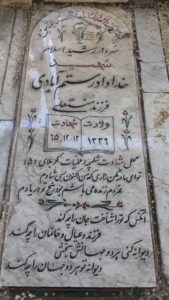 سردار رشید اسلام
شهید
خداداد رستم آبادی
فرزند
ولادت شهادت
۱۳۳۹ ۶۵/۱۲/۱۲
محل شهادت شلمچه عملیات کربلای (۵)
آنکس که تو را شناخت جان را چه کند
فرزند و عیال و خانمان را چه کند
دیوانه کنی هر دو جهانش بخشی
دیوانه تو هر دو جهان را چه کند